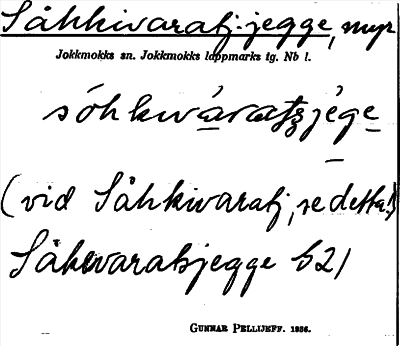 Såhkivaratj-jegge, myr
Jokkmokks sn. Jokkmokks lappmarks tg. Nb l.
sóhkwáratʒjége
(vid Såhkivaratj, se detta!)
Såkevaratsjegge 521
Gunnar Pellijeff. 1956.